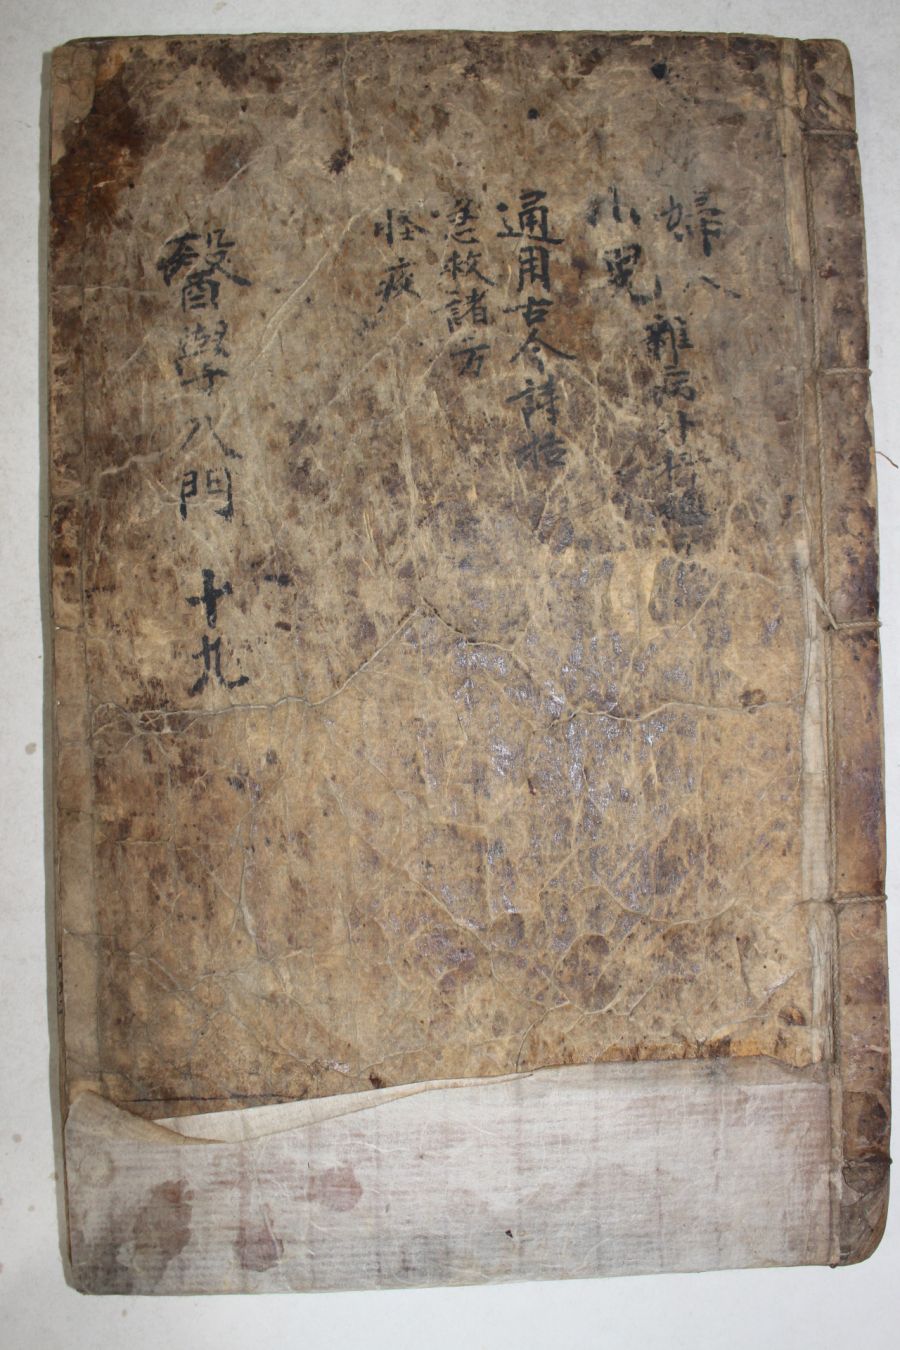 婦人雜病外科總
小兒
通用古今詩括
急救諸方
怪疾
醫學入門 十九